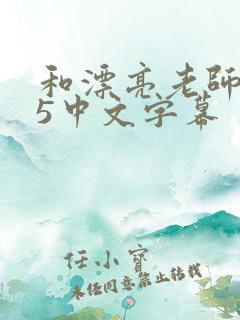 和漂亮老師
5中文字幕
任小寶
未经同意禁止转载